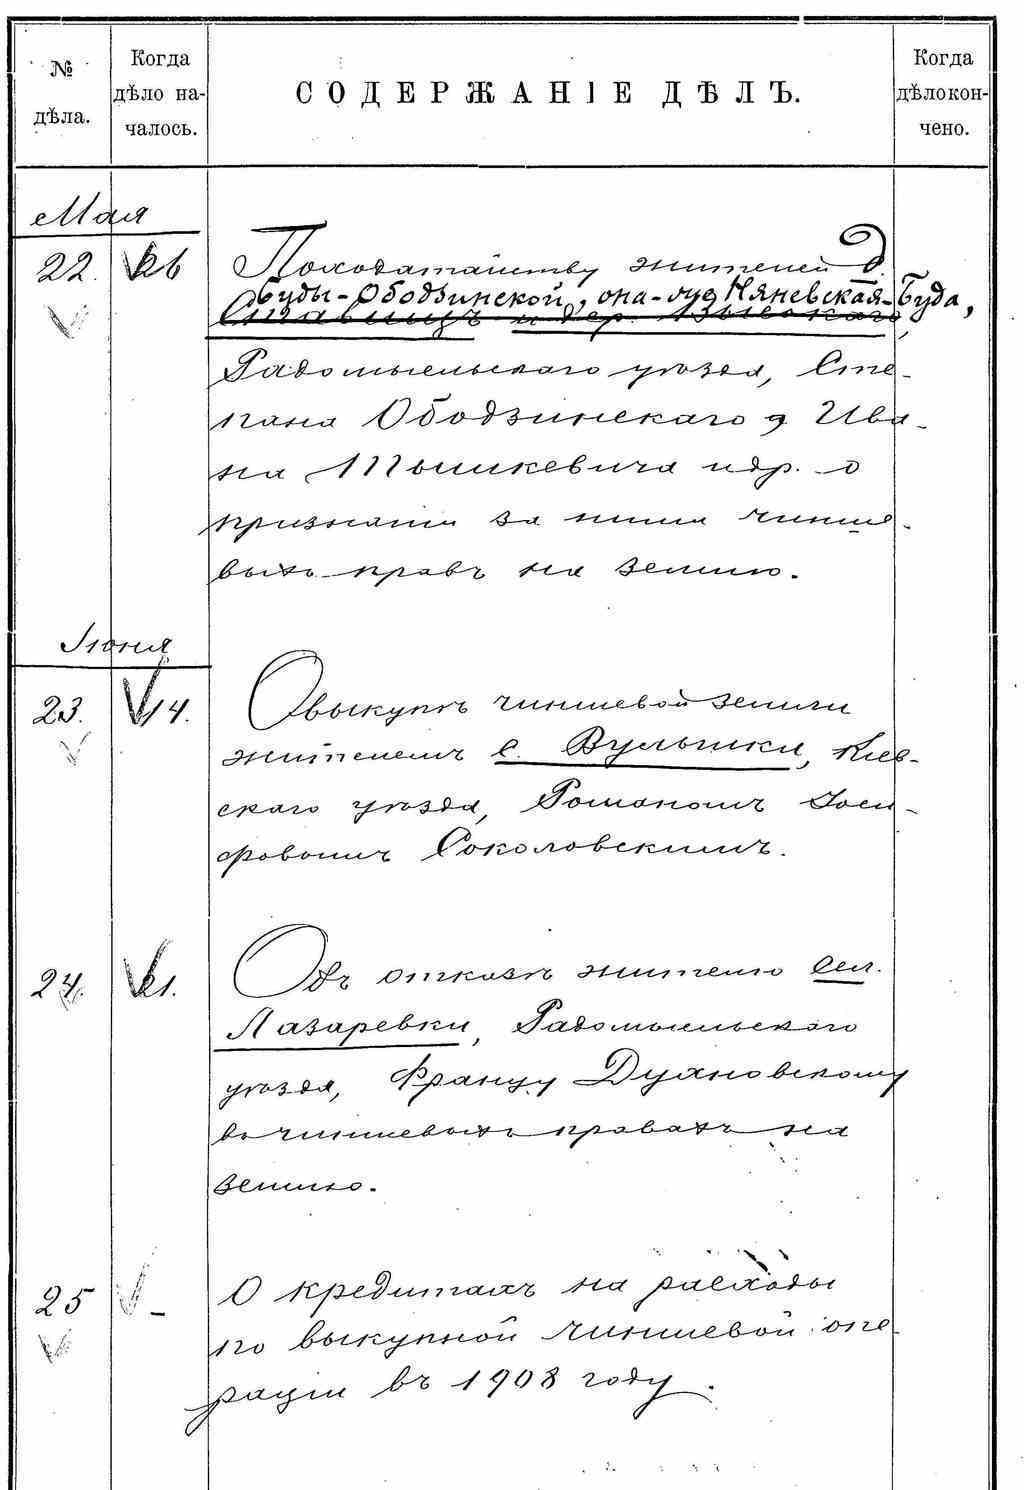 № дѣла.
Когда дѣло на-
чалось.
СОДЕРЖАНІЕ ДѢЛЪ.
Когда дѣлокон-
чено.
Мая
22. 26 Походатайству жителей д.
Буды-Ободзинской, она-же Няневская-Буда,
Ставищъ и дер. Высокаго,
Радомысльскаго уѣзда, Сте-
пана Ободзинскаго, Ива-
на Тышкевича и др. о
признаніи за ними чинше-
выхъ правъ на землю.
Іюня
23. 14. О выкупѣ чиншевой земли
жителемъ с. Вульшки, Кіев-
скаго уѣзда, Романомъ Іоси-
фовымъ Соколовскимъ.
24. 21. Объ отказѣ жителю сел.
Лазаревки, Радомысльскаго
уѣзда, Францу Духновскому
въ чиншевыхъ правахъ на
землю.
25 - О кредитахъ на расходы
по выкупной чиншевой опе-
раціи въ 1908 году.